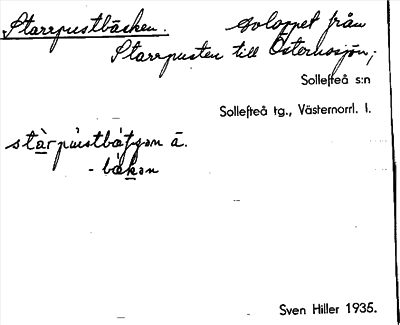 Starrpustbäcken. avloppet från
Starrpusten till Östernosjön;
Sollefteå s:n
Sollefteå tg., Västernorrl. l.
ā.
Sven Hiller 1935.